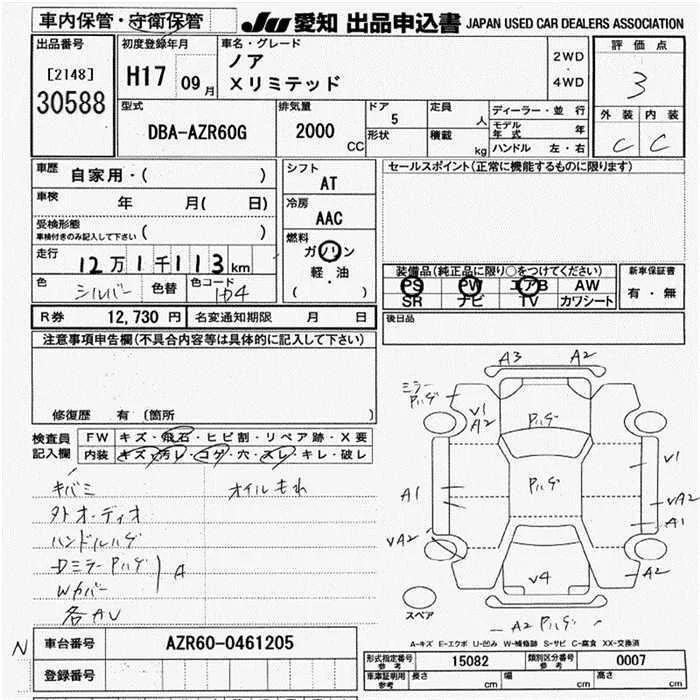 車内保管・守衛保管
JU 愛知 出品申込書 JAPAN USED CAR DEALERS ASSOCIATION
出品番号
[2148]
30588
初度登録年月
H17 09月
車名・グレード
ノア
Xリミテッド
2WD
・
4WD
評価点
3
外装 内装
C C
型式
DBA-AZR60G
排気量
2000 CC
ドア
5
形状
定員 人
積載 kg
ディーラー・並行
モデル年式 年
ハンドル 左・右
車歴 自家用・( )
車検 年 月( 日)
受検形態
車検付きのみ記入して下さい ( )
走行
12万1千113km
色 シルバー 色替 色コード 1D4
シフト
AT
冷房
AAC
燃料
ガソリン
軽・油
( )
セールスポイント(正常に機能するものに限ります)
装備品(純正品に限り○をつけてください)
PS PW エアB AW
SR ナビ TV カワシート
新車保証書
有・無
後日品
R券 12,730円 名変通知期限 月 日
注意事項申告欄(不具合内容等は具体的に記入して下さい)
修復歴 有(箇所
検査員記入欄
FW キズ・飛石・ヒビ割・リペア跡・X要
内装 キズ・汚レ・コゲ・穴・スレ・キレ・破レ
キバミ オイルもれ
外オーディオ
ハンドルハゲ
Dミラー Pハゲ
Wカバー
A
各AU
N
車台番号 AZR60-0461205
登録番号
A3 A2
ミラーPハゲ
V1
A2
Pハゲ
V1
A1
Pハゲ
VA2
A1
VA2
V4
A2
スペア
A2 Pハゲ
A-キズ E-エクボ U-凹み W-補修跡 S-サビ C-腐食 XX-交換済
形式指定番号参考 15082 類別区分番号参考 0007
車庫証明用参考 長さ cm 幅 cm 高さ cm